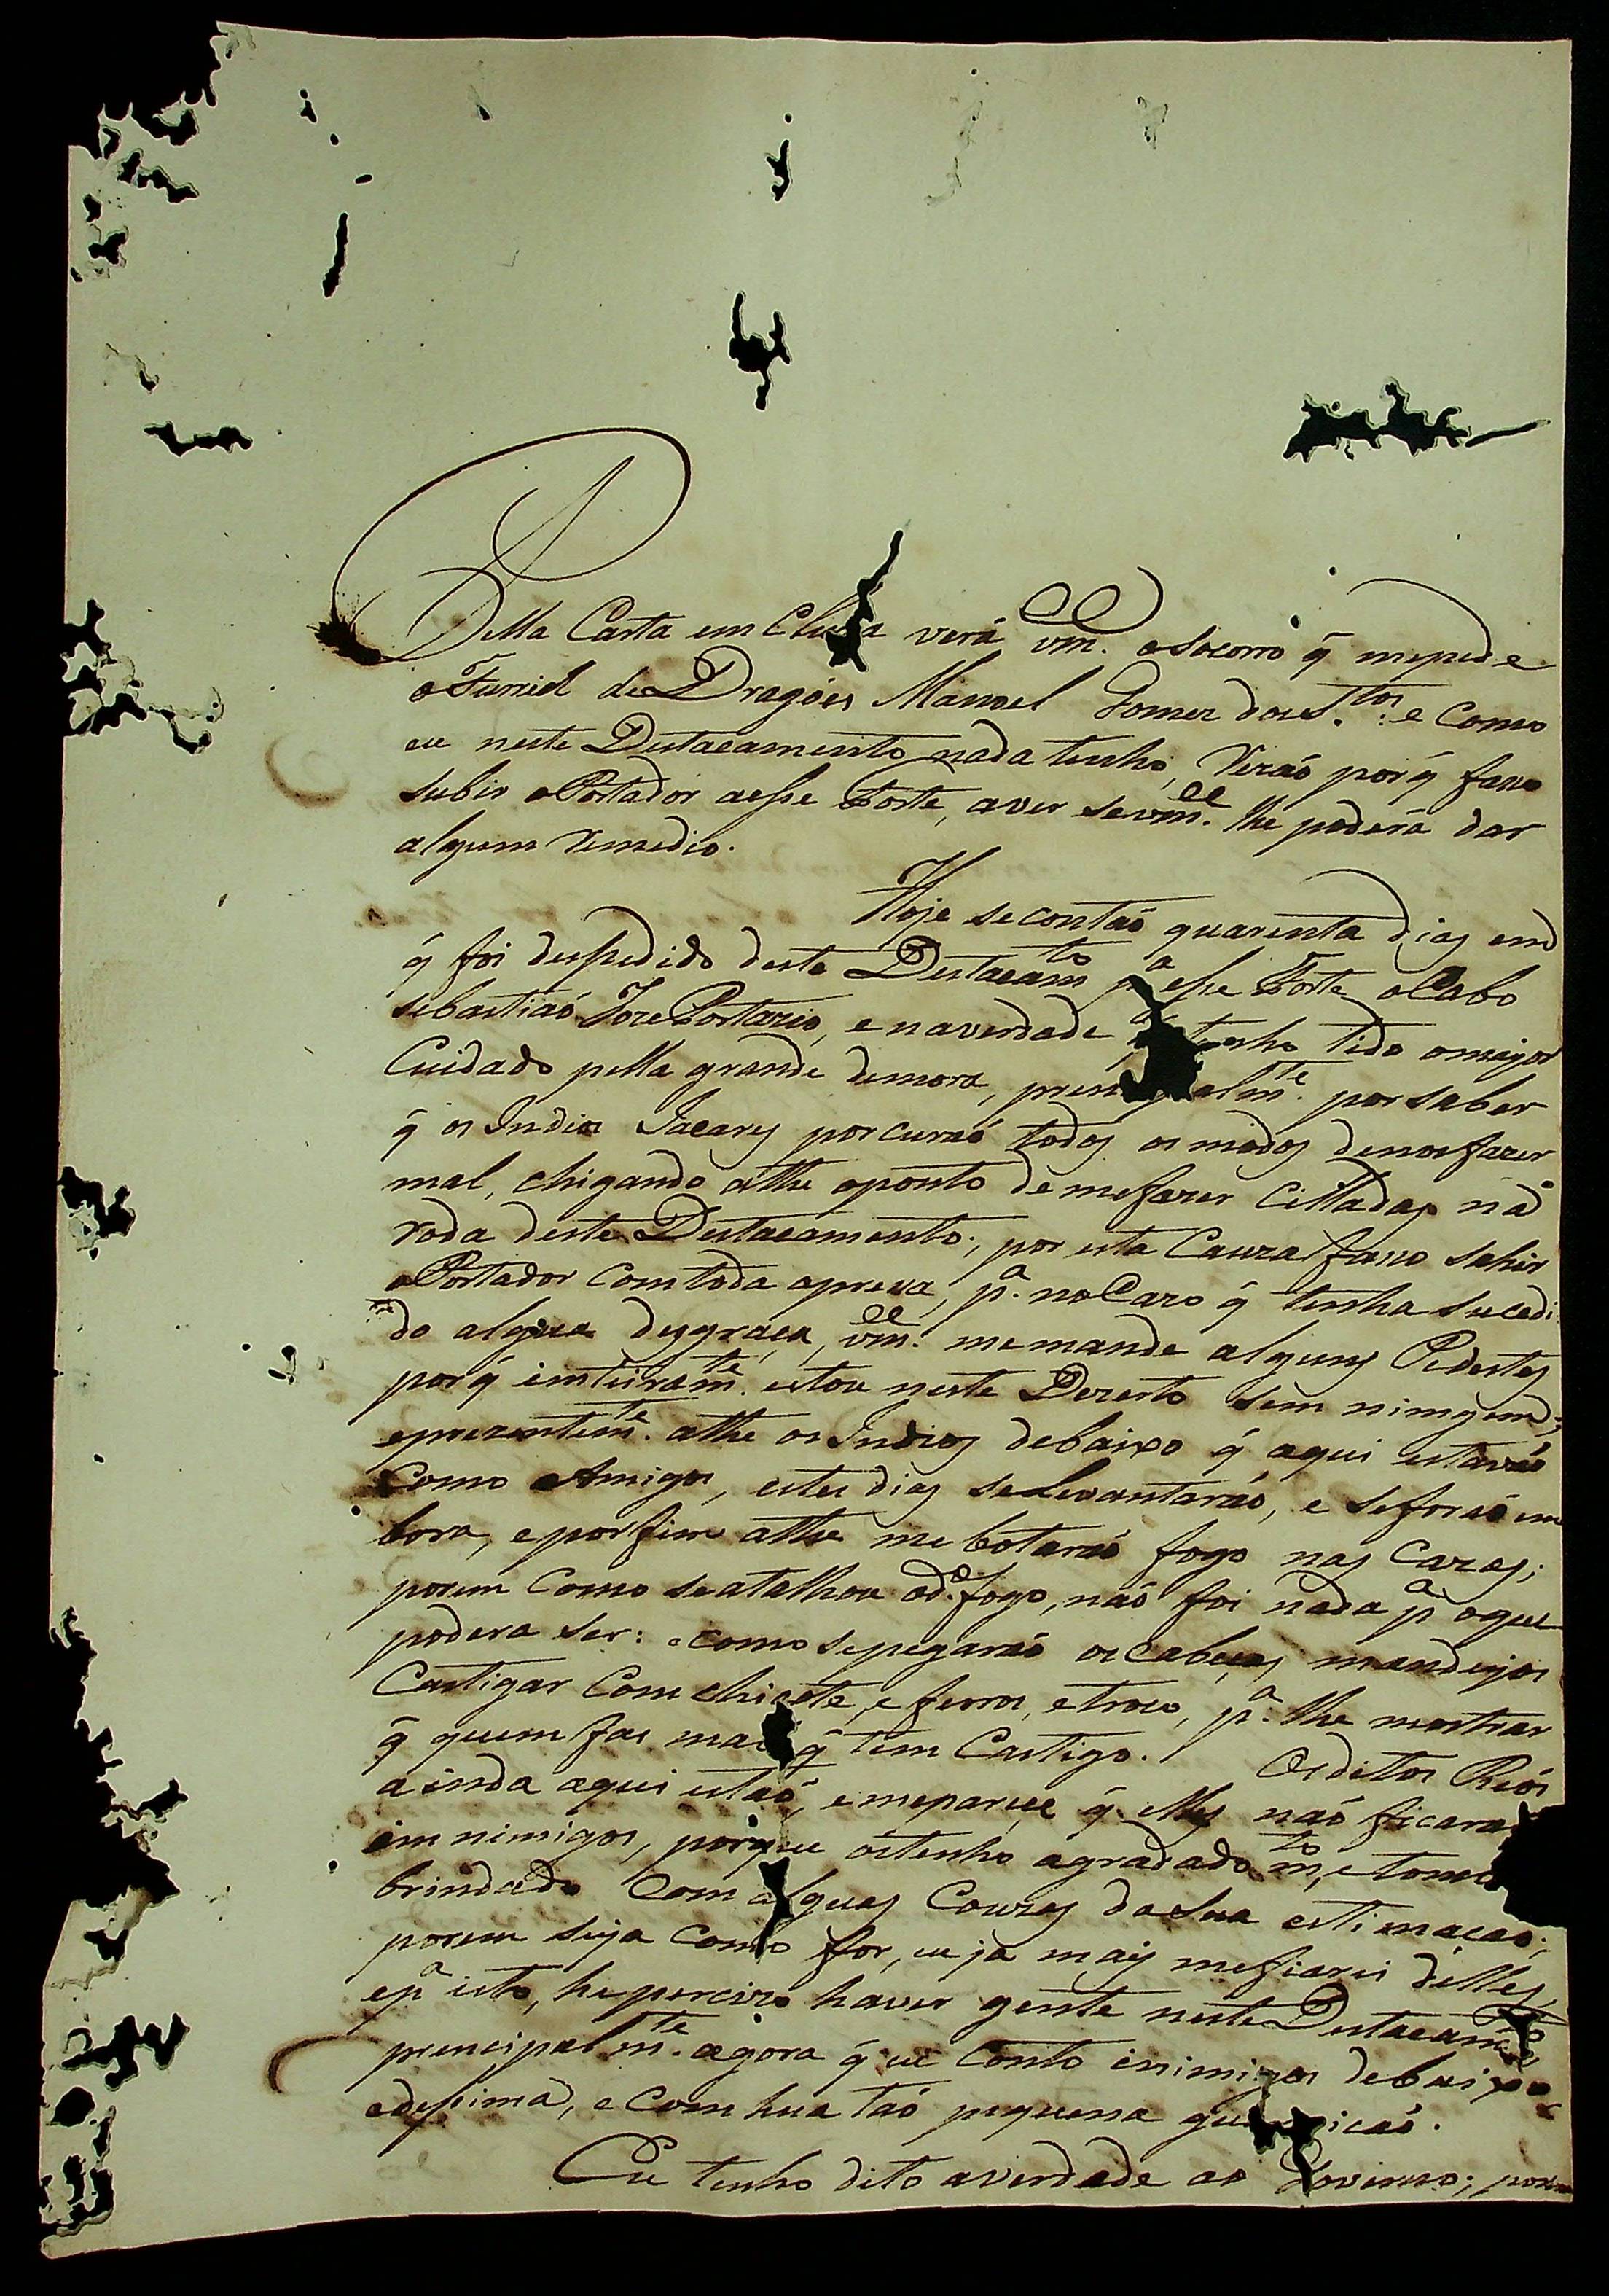 Pella Carta em Cluza verá vm.ce o Socorro q̃ mepede
o Furriel de Dragóes Manoel Gomez dos S.tos: e Como
eu neste Destacamento nada tenho, Rezaó porq̃ faso
subir o Portador aesse Forte, aver sevm.ce lhe poderá dar
algum Remedio.
Hoje se contaó quarenta dias em
q̃ foi despedido deste Destacam.to p.a esse Forte o Cabo
sebastiaó Joze Portazio, e naverdade tenho tido omayor
Cuidado pella grande demora, prencipalm.te por saber
q̃ os Indios Jacarés porcuraó todos os modos denosfazer
mal, chigando athe oponto demefazer Cilladas na
roda deste Destacamento; por esta Cauza faso sahir
o Portador Comtoda apresa, p.a noCazo q̃ tenha sucedi
do algũa desgraça, vm.ce memande alguns Pedestes
porq̃ imteiram.te estou neste Dezerto sem nimgem;
eprezentem.te athe os Indios debaixo q̃ aqui estavaó
Como Amigos, estes dias seLevantaraó, e seforaó em
bora, eporfim athe mebotaraó fogo nas Cazas;
porem Como seatalhou od.o fogo, naó foi nada p.a oque
podera ser: ecomo sepegaraó oscabeças, mandeyos
Castigar Comchicote, eferros, etroco, p.a lhe mostrar
q̃ quem faz mal q̃ tem Castigo. Osditos Reós
ainda aqui estaó, emeparece q̃ elles naó ficara
imnimigos, porque ostenho agradado m.to, etenho
brindado Com algũas Couzas dasua estimacao;
porem seja Como for, eu ja mais mefiarei delles,
ep.a isto, heperciso haver gente nesteDestacam.to
prencipalm.te agora q̃ eu Conto inimigos debaixo
edesima, eComhua taó pequena guarnicaó.
Eu tenho dito averdade ao Governo; porem